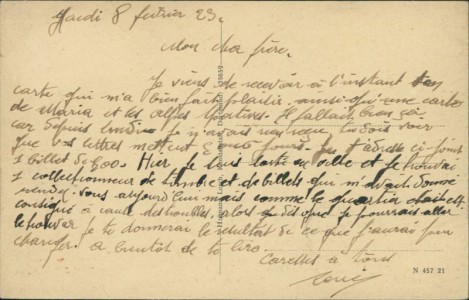 Mardi 8 fevrier 23.
Mon cher frère,
Je viens de recevoir à l'instant ton
carte qui m'a bien fait plaisir ainsi qu'une carte
de Maria et les Il fallait bien ça
car depuis lundi je n'avais rien reçu tu dois voir
que vos lettres mettent jours. Je t'adresse ci-joint
1 billet de 600. Hier je suis en ville et je trouvai
1 collectionneur de timbre et de billets qui m'avait donné
rendez-vous aujourd'hui mais comme le quartier était
consigné à cause des troubles, alors dès que je pourrais aller
le trouver je te donnerai le resultat de ce que j'aurai pu
changer. A bientôt de te lire.
Caresses à tous
N 457 21